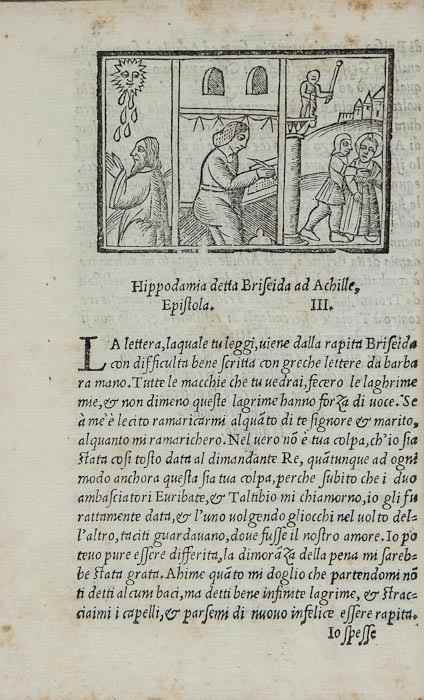 Hippodamia detta Briseida ad Achille,
Epistola. III.
LA lettera, laquale tu leggi, uiene dalla rapita Briseida
con difficulta bene scritta con greche lettere da barba
ra mano. Tutte le macchie che tu uedrai, fecero le laghrime
mie, & non dimeno queste lagrime hanno forza di uoce. Se
à me è lecito ramaricarmi alquãto di te signore & marito,
alquanto mi ramarichero. Nel uero nõ è tua colpa, ch'io sia
stata cosi tosto data al dimandante Re, quãtunque ad ogni
modo anchora questa sia tua colpa, perche subito che i duo
ambasciatori Euribate, & Taltibio mi chiamorno, io gli fu
rattamente data, & l'uno uolgendo gliocchi nel uolto del-
l'altro, taciti guardauano, doue fusse il nostro amore. Io po
teuo pure essere differita, la dimorãza della pena mi sareb-
be stata grata. Ahime quãto mi doglio che partendomi nõ
ti detti alcum baci, ma detti bene infinite lagrime, & strac-
ciaimi i capelli, & parsemi di nuouo infelice essere rapita.
Io spesse